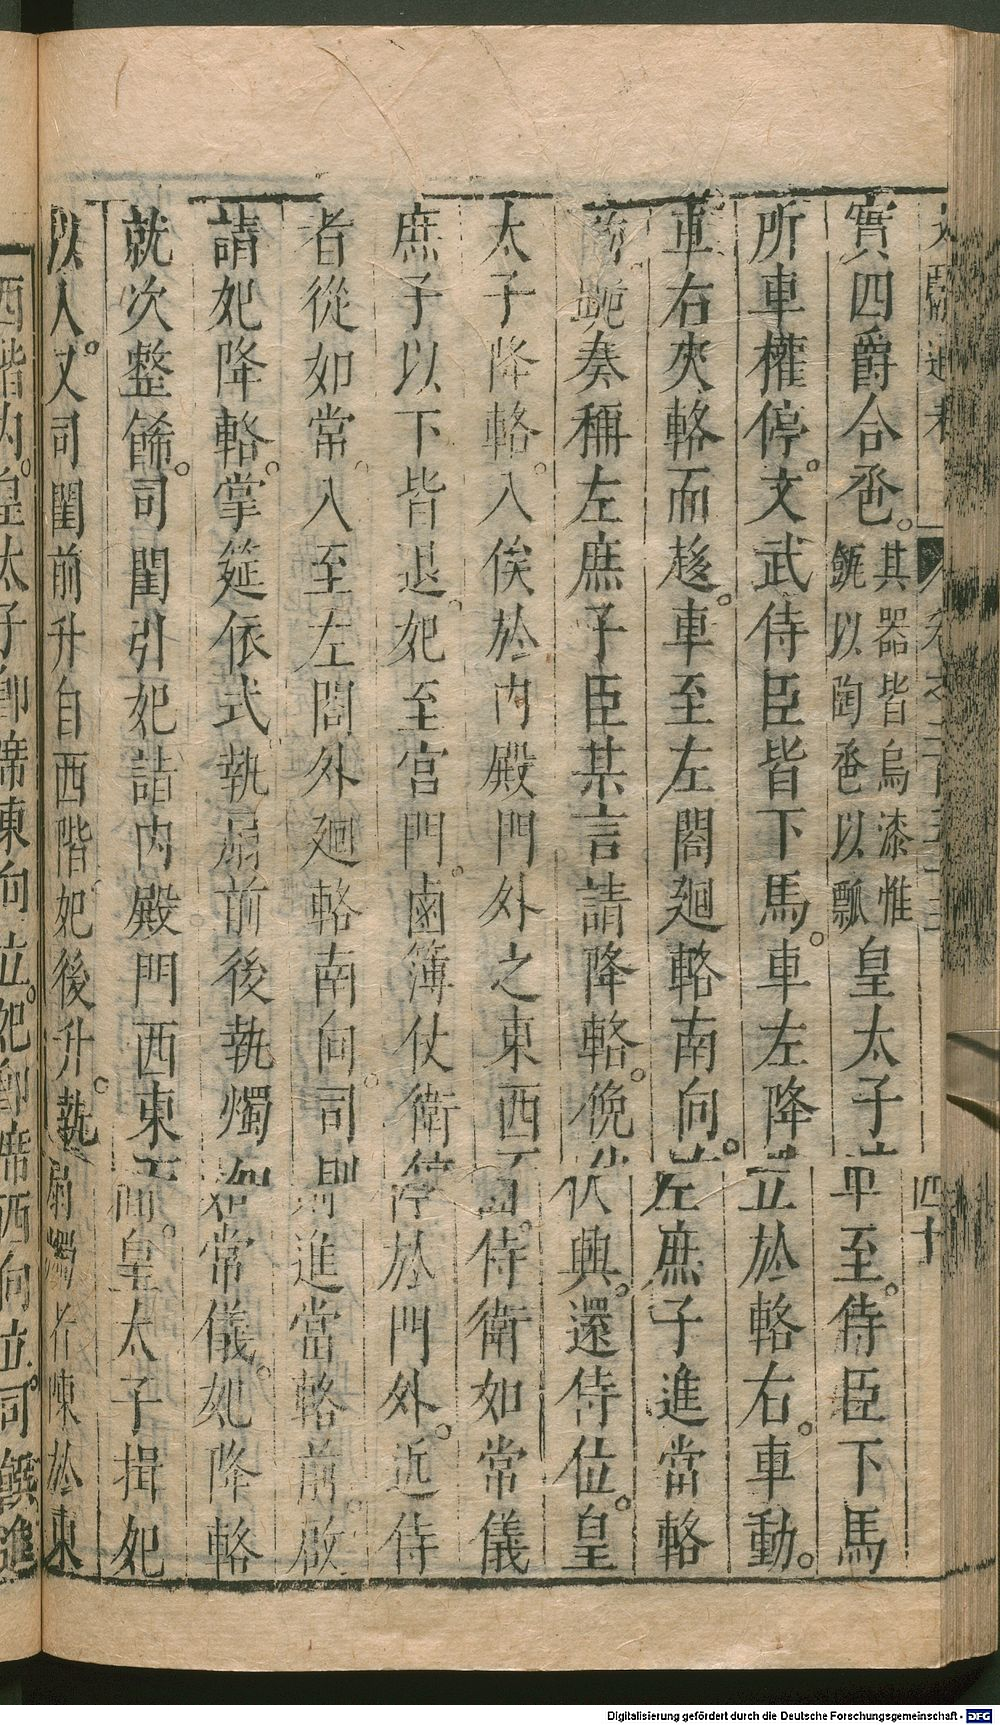 實四爵合卺。其器皆烏漆惟巹以陶卺以瓢皇太子車至。侍臣下馬
所車權停。文武侍臣皆下馬。車左降立於輅右。車動。
車右夾輅而趍。車至左閤廻輅南向。左庶子進當輅
前跪奏稱左庶子臣某言請降輅。俛伏興。還侍位。皇
太子降輅。入俟於內殿門外之東西面。侍衛如常儀
庶子以下皆退。妃至宮門。鹵簿仗衛停於門外。近侍
者從如常。入至左閤外廻輅南向。司則進當輅前。啟
請妃降輅。掌筵依式執扇前後執燭如常儀。妃降輅
就次整餙。司閨引妃詣內殿門西東面。皇太子揖妃
以入。又司閨前升自西階妃後升。執扇燭者陳於東
西階內。皇太子卽席東向立。妃卽席西向立。司饌進
四十
Digitalisierung gefördert durch die Deutsche Forschungsgemeinschaft - DFG